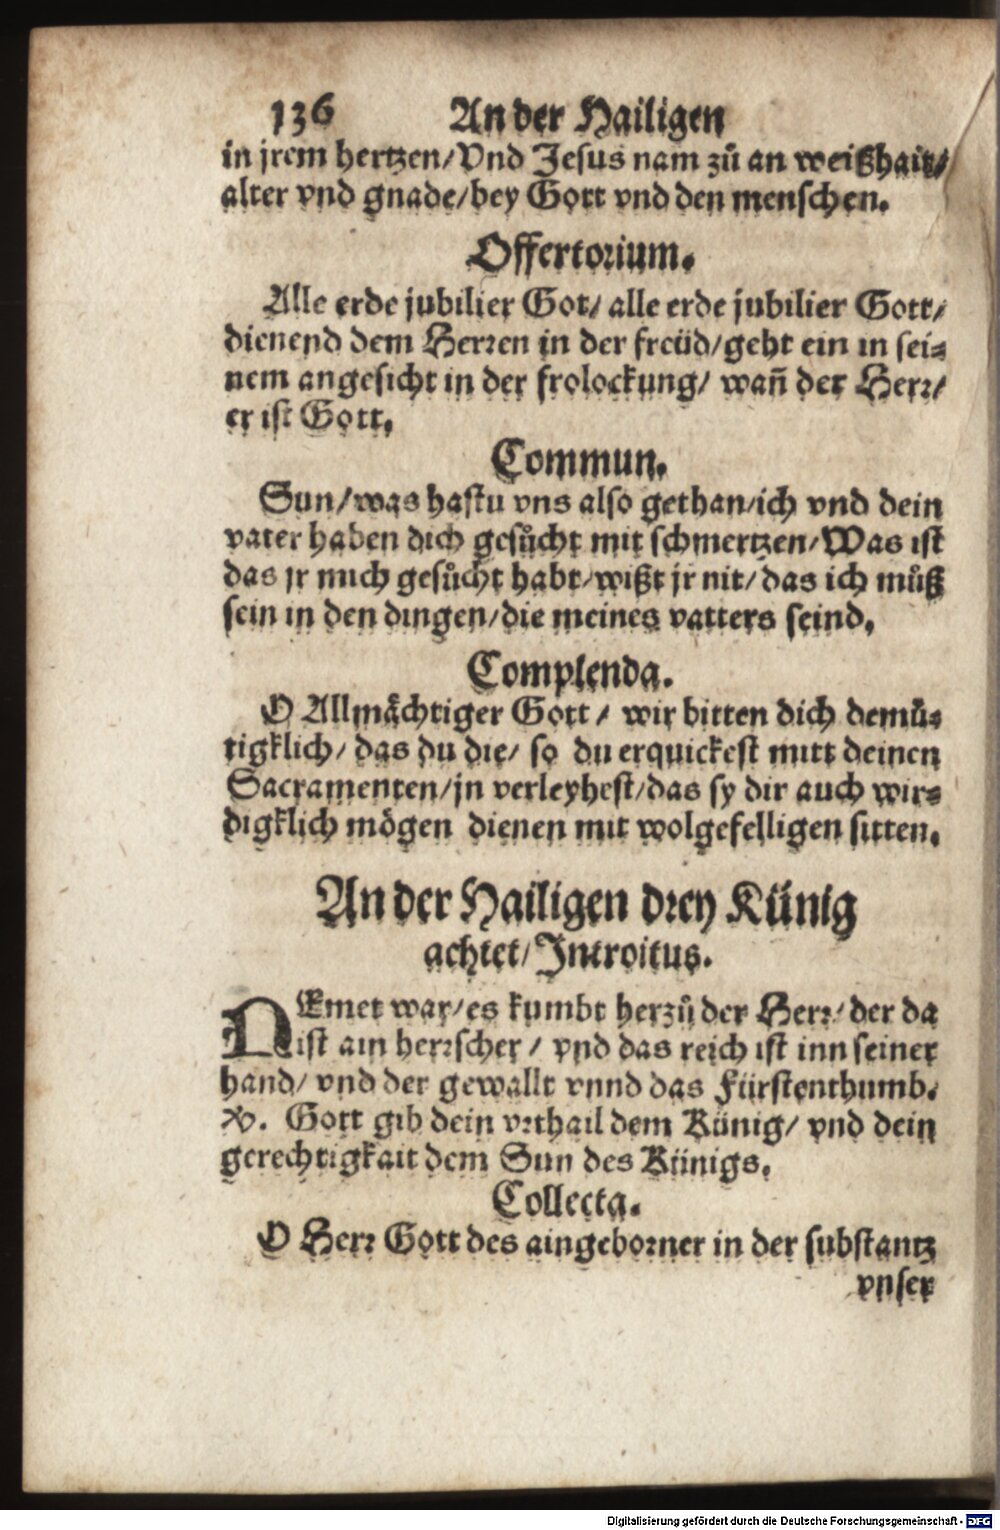 136 An der Hailigen
in jrem hertzen/Vnd Jesus nam zů an weißhait/
alter vnd gnade/bey Gott vnd den menschen.
Offertorium.
Alle erde jubilier Got/ alle erde jubilier Gott/
dienend dem Herren in der freüd/geht ein in sei=
nem angesicht in der frolockung/ wañ der Herr/
er ist Gott.
Commun.
Sun/was hastu vns also gethan/ich vnd dein
vater haben dich gesůcht mit schmertzen/Was ist
das jr mich gesůcht habt/wißt jr nit/das ich můß
sein in den dingen/die meines vatters seind.
Complenda.
O Allmåchtiger Gott/ wir bitten dich demů=
tigklich/ das du die/ so du erquickest mitt deinen
Sacramenten/jn verleyhest/das sy dir auch wir=
digklich mögen dienen mit wolgefelligen sitten.
An der Hailigen drey Künig
achtet/Introitus.
NEmet war/es kumbt herzů der Herr/der da
ist ain herrscher/ vnd das reich ist inn seiner
hand/ vnd der gewallt vnnd das Fürstenthumb.
℣. Gott gib dein vrthail dem Künig/ vnd dein
gerechtigkait dem Sun des Künigs.
Collecta.
O Herr Gott des aingeborner in der substantz
vnser
Digitalisierung gefördert durch die Deutsche Forschungsgemeinschaft - DFG